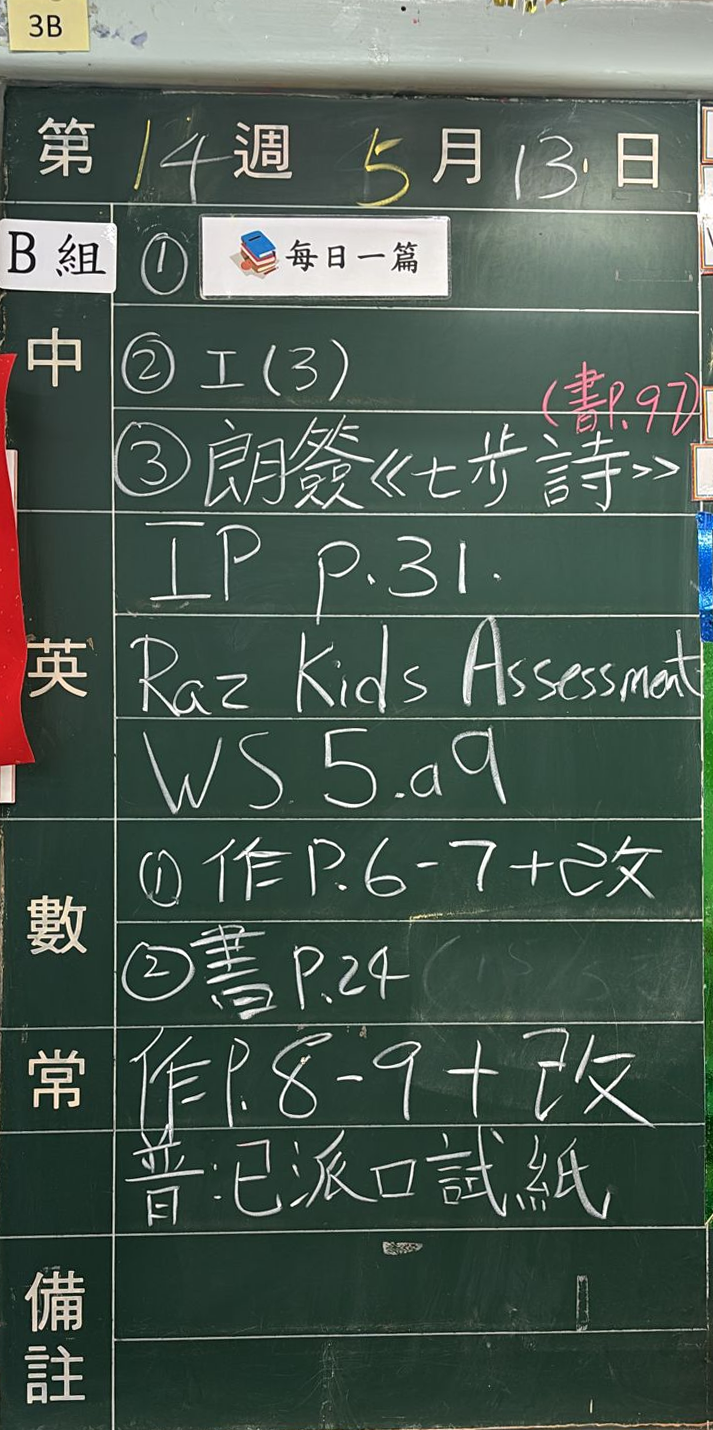 3B
第 14 週 5 月 13 日
B 組 ① 每日一篇
中 ② 工(3)
(書P.97)
③ 朗簽《七步詩》
IP p.31.
英 Raz Kids Assessment
WS. 5.a9
① 作 P.6-7+改
數 ② 書 P.24
常 作P.8-9+改
普:已派口試紙
備註